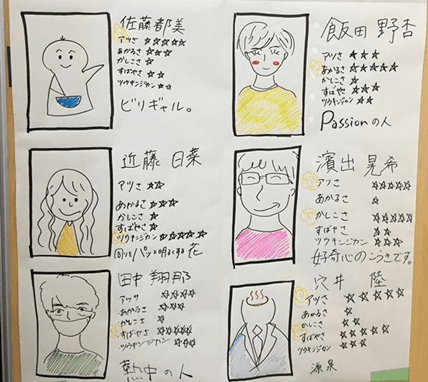 佐藤都美
アツさ ☆☆☆☆☆
あかるさ ☆☆☆☆
かしこさ ☆
すばやさ ☆☆
ツウキンジカン ☆☆
ビリギャル。
飯田 野杏
アツさ ★★★
あかるさ ★★★★★
かしこさ ☆
すばやさ ★★★
ツウキンジカン ★★
Passionの人
近藤 日菜
アツさ ☆☆
あかるさ ☆☆☆☆
かしこさ ☆
すばやさ ☆
ツウキンジカン ☆☆☆☆☆
パッと明るくする花
濱出 晃希
アツさ ☆☆☆☆☆
あかるさ ☆
かしこさ ☆☆☆☆☆
すばやさ ☆☆
ツウキンジカン ☆☆
好奇心のこうきです。
田中 翔那
アツサ ☆☆☆☆
あかるさ ☆☆☆
かしこさ ☆
すばやさ ☆☆☆☆☆
ツウキンジカン ☆☆
熱中の人
穴井 陸
アツさ ☆☆☆☆☆
あかるさ ☆
かしこさ ☆☆
すばやさ ☆☆☆☆
ツウキンジカン ☆☆
源泉